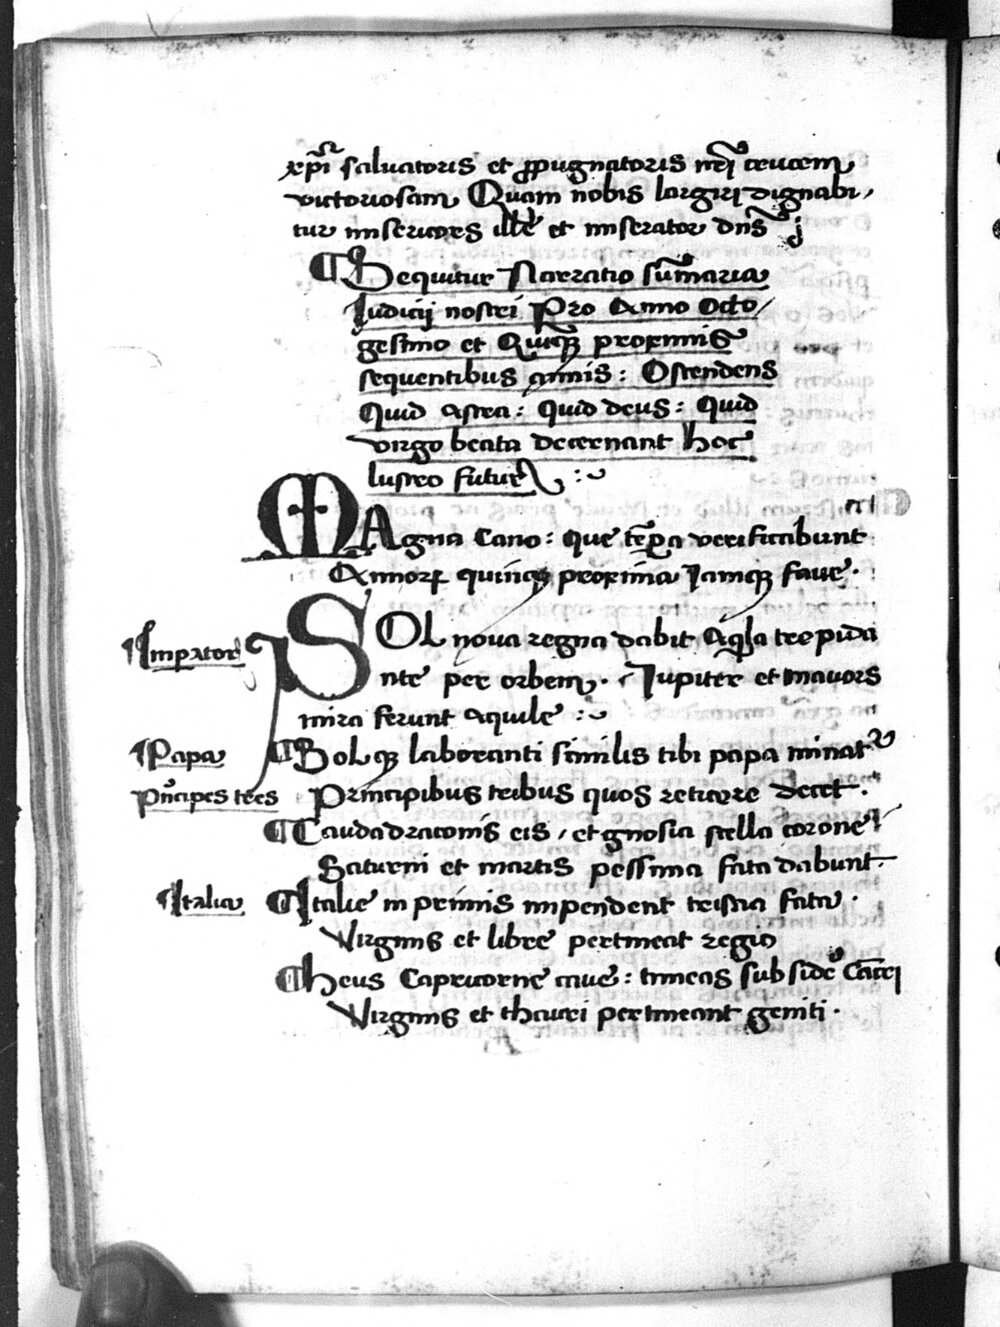 xp̄i saluatoris et ꝓpugnatoris nr̄i crucem
victoriosam Quam nobis largiri dignabi,
tur misericors ille et miserator dn̄s
¶ Sequitur Narratio sūmaria
Iudicij nostri Pro Anno Octo/
gesimo et Quiqꝫ proximis
sequentibus annis: Ostendens
Quid Astra: quid deus: Quid
virgo beata decernant hoc
lustro futur
MAgna Cano: que tēpꝛa verificabunt
Annoꝝ quinqꝫ proxima Iamqꝫ faue.
¶Imperator
SOL noua regna dabit Aqla trepida
nte per orbem. Iupiter et mauors
mira ferunt aquile :~
¶Papa
¶Bolqꝫ laboranti similis tibi papa minat᷑
pn̄cipes tres
Principibus tribus quos reticere decet.
¶Cauda draconis eis, et gnosia stella corone
Saturni et martis pessima fata dabunt
¶Italia
¶Italie in primis impendent tristia fata.
Virginis et libre pertineat regio
¶Heus Capricorne caue: timeas sub side Cācri
Virginis et thauri pertineant geniti.